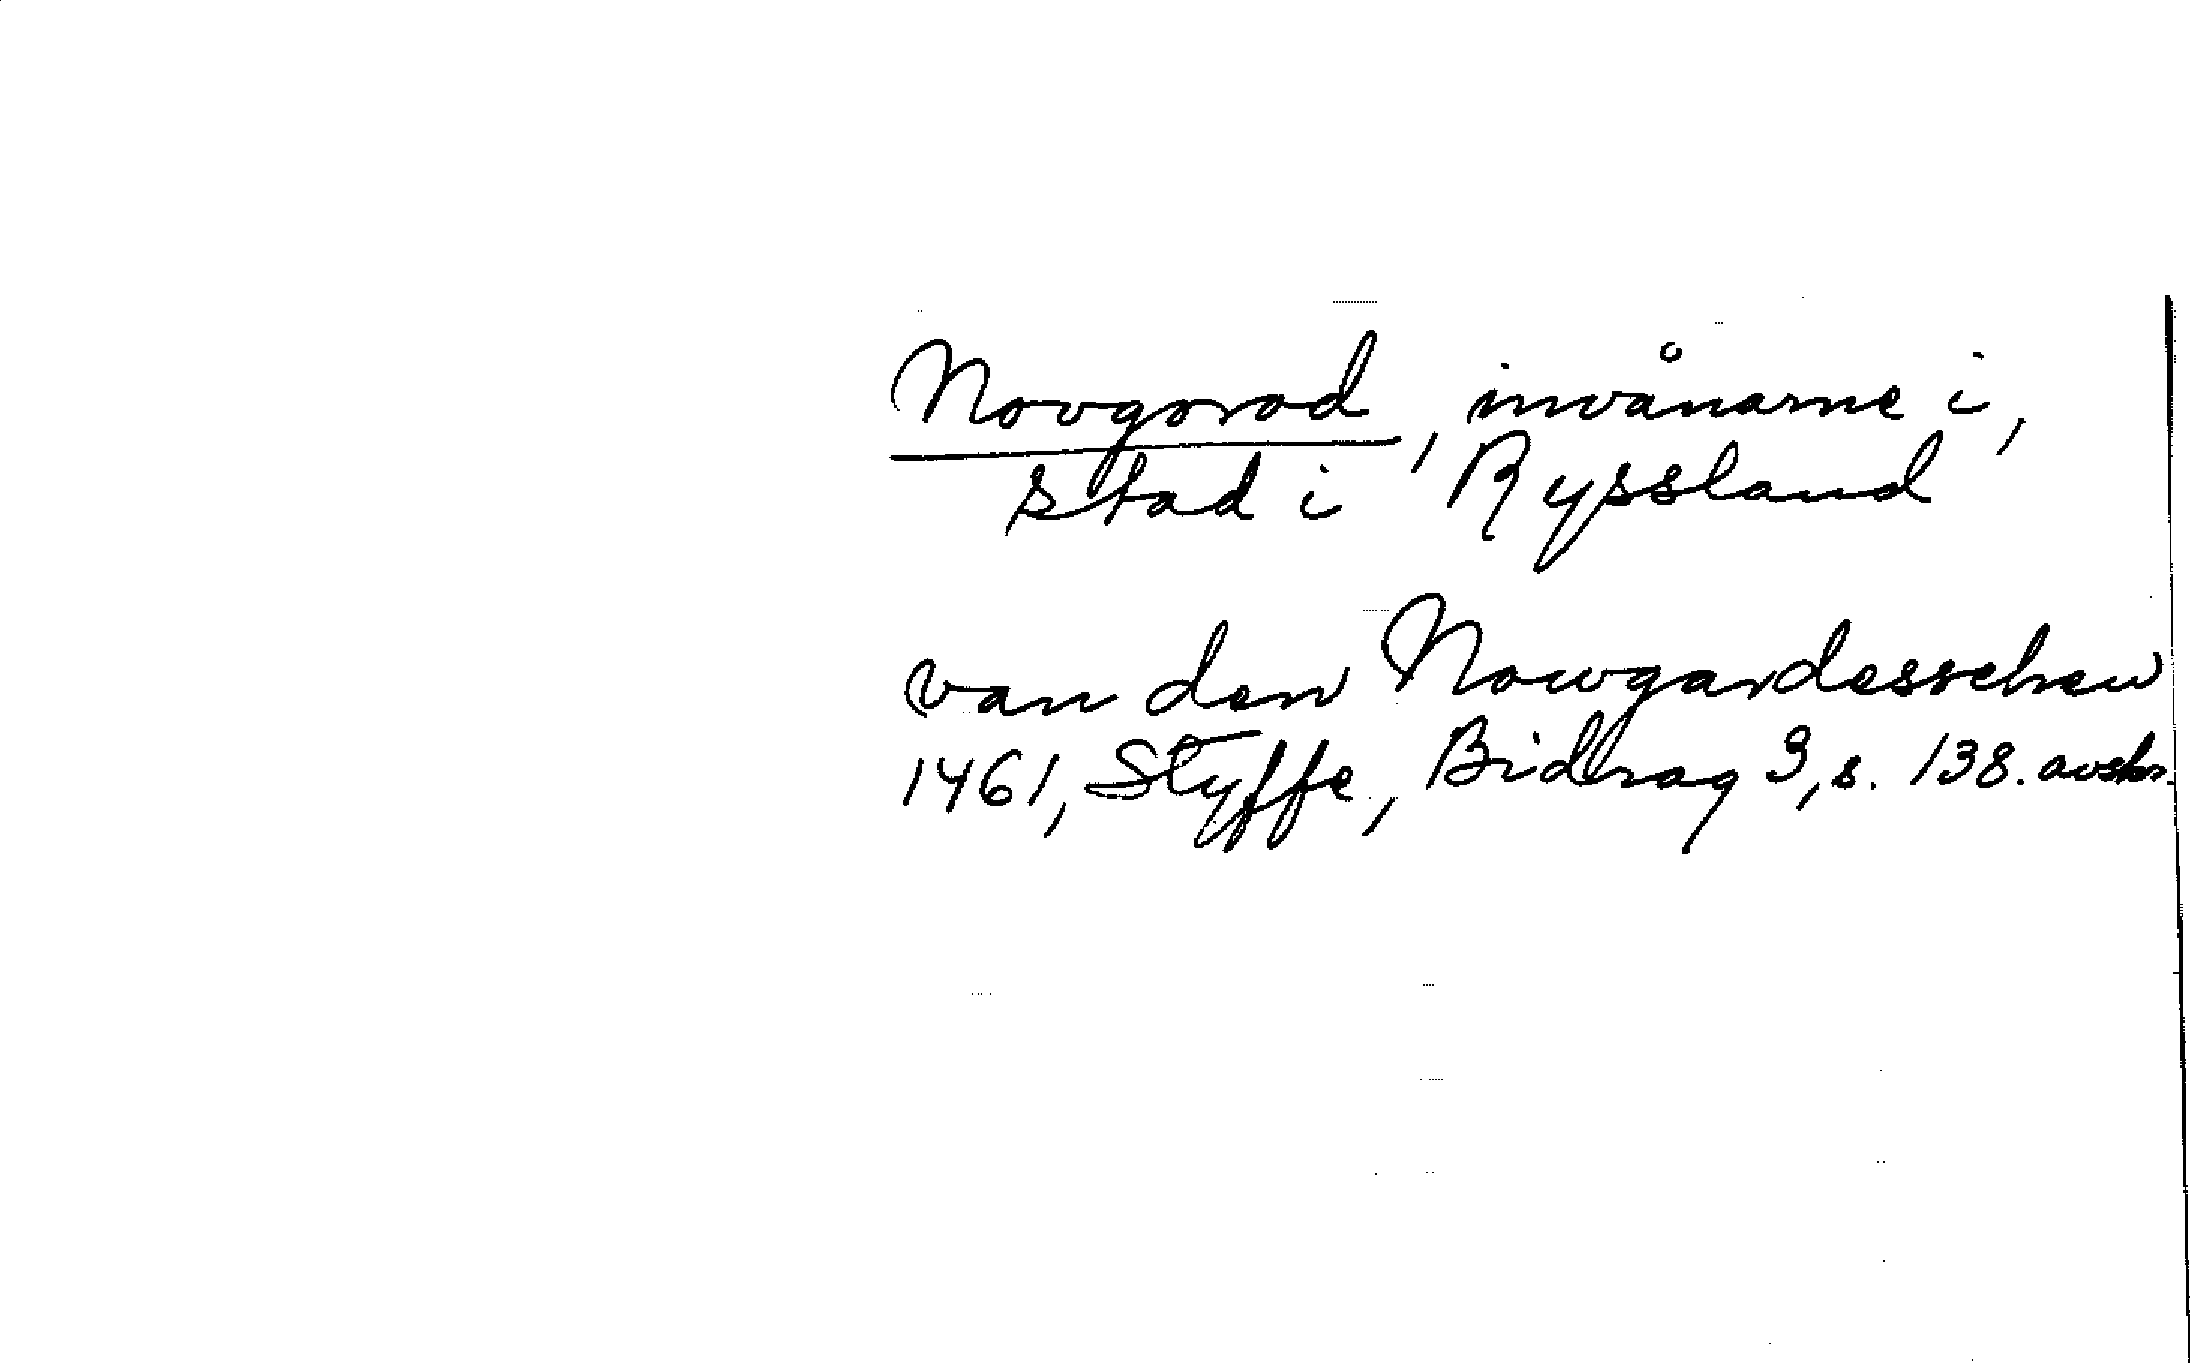 Novgorod, invånarne i,
stad i Ryssland
van den Nowgardesschen
1461, Styffe, Bidrag 3, s. 138. avskr.